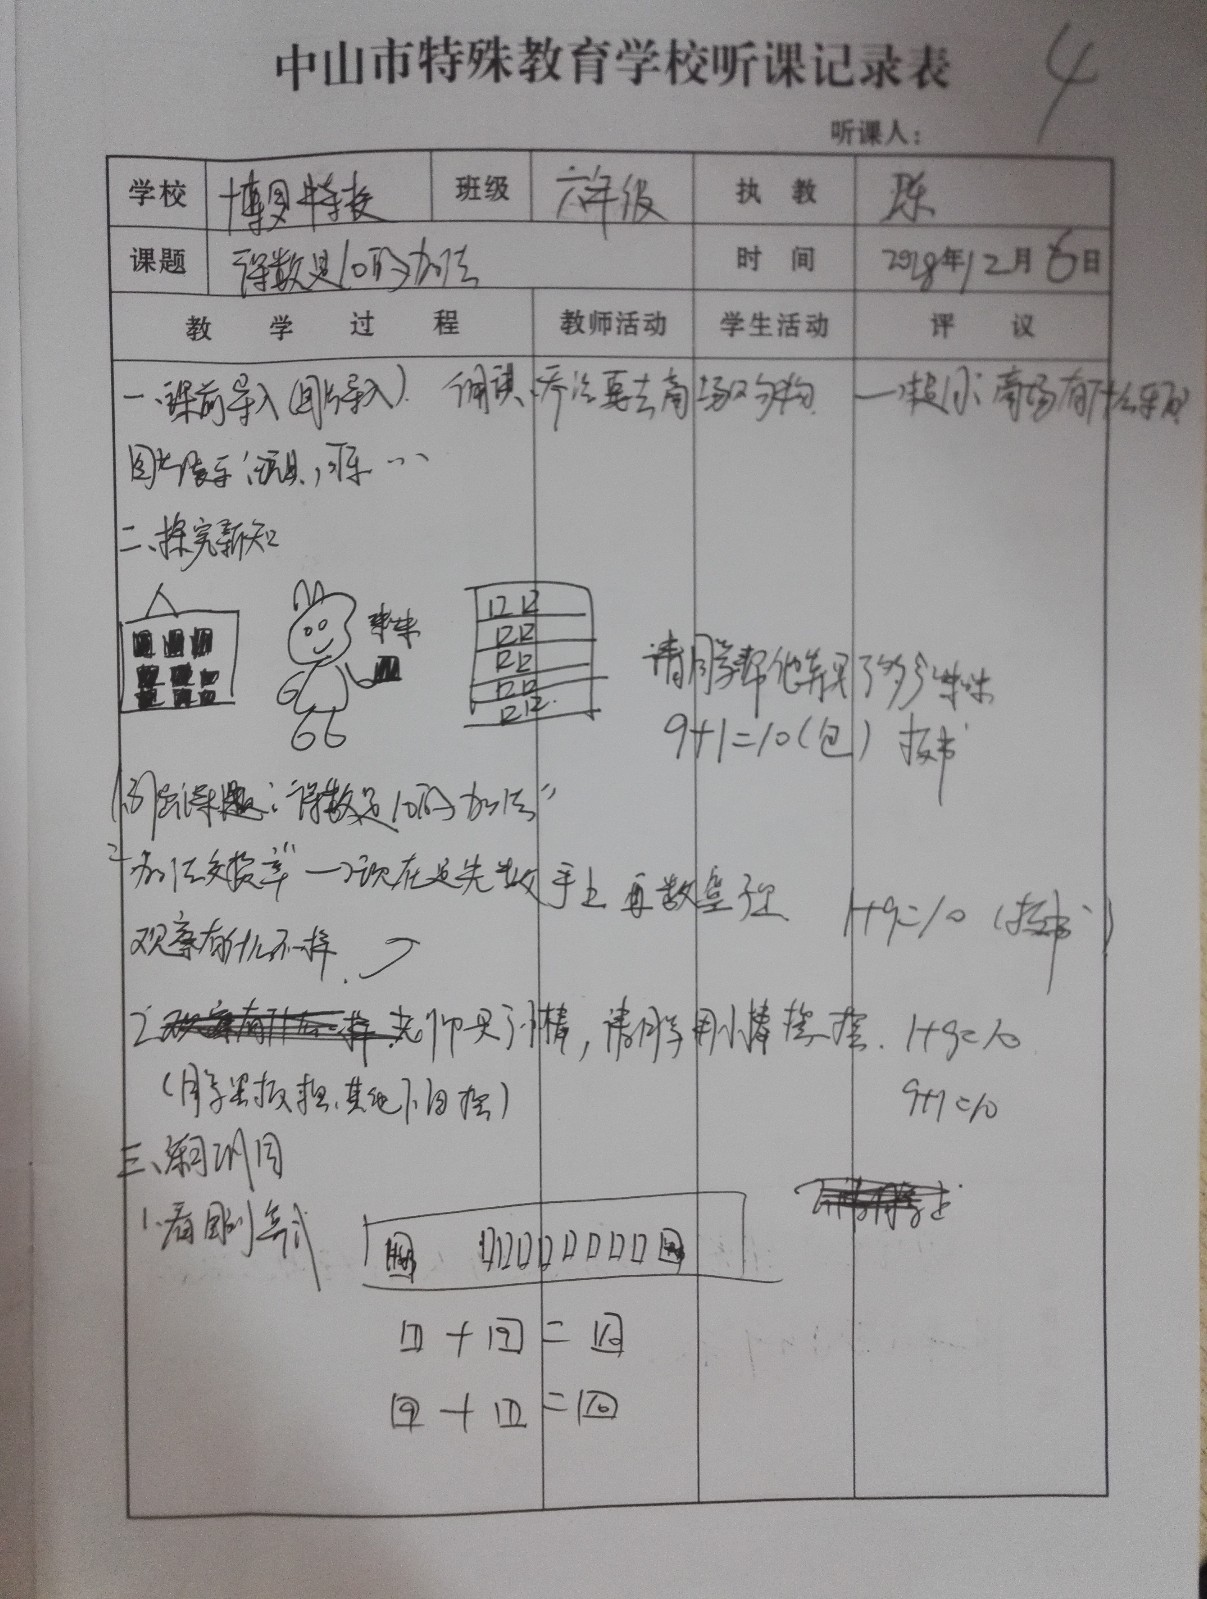 中山市特殊教育学校听课记录表
4
听课人：
学校 博爱特校 班级 六年级 执教 陈
课题 得数是10的加法 时间 2018年12月6日
教学过程 教师活动 学生活动 评议
一、课前导入(图片导入). 要去商场购物 商场有什么东西
图片展示：玩具，可乐…
二、探究新知
12 12
12 12
12 12
12 12
12 12
请同学帮他算买了多少
9+1=10(包) 板书
引出课题："得数是10的加法"
"加法交换率" 现在是先数手上再数 1+9=10 (板书)
观察有什么不一样.
2. 老师买了小棒，请同学用小棒摆一摆. 1+9=10
(同学黑板摆,其他下面摆) 9+1=10
三、练习巩固
1.看图列算式
1 + 9 = 10
9 + 1 = 10